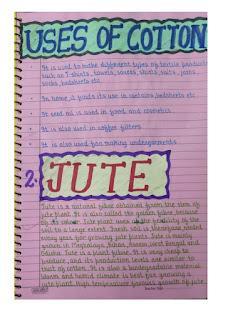 USES OF COTTON
It is used to make different types of textile products
such as T-shirts, towels, sarees, shirts, suits, jeans,
socks, bedsheets etc.
In home, it finds its use in curtains, bedsheets etc.
It seed oil is used in food and cosmetics
It is also used in coffee filters
It is also used for making undergarments
2. JUTE
Jute is a natural fibre obtained from the stem of
jute plant. It is also called the golden fibre because
of its colour. Jute plant uses up the fertility of the
soil to a large extent. Fresh soil is therefore needed
every year for growing jute plants. Jute is mainly
grown in Meghalaya, Bihar, Assam, West Bengal and
Odisha. Jute is a plant fibre. It is very cheap to
produce, and its production levels are similar to
that of cotton. It is also a biodegradable material
Warm and humid climate is best for growing a
jute plant. High temperature favours growth of jute